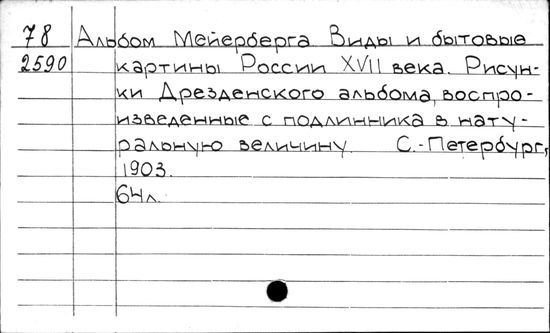 78 Альбом Мейерберга Виды и бытовые
2590 картины России XVII века. Рисун-
ки Дрезденского альбома, воспро-
изведенные с подлинника в нату-
ральную величину. С.-Петербург,
1903.
64л.